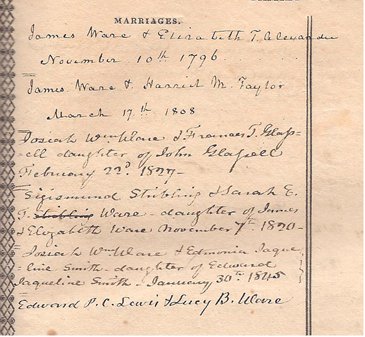 MARRIAGES.
James Ware & Elizabeth T. Alexander
November 10th 1796
James Ware & Harriet M. Taylor
March 17th 1808
Josiah Wm Ware & Frances T. Glass-
ell daughter of John Glassell
February 22d 1827-
Sigismund Stribling & Sarah E.
T. Stribling Ware - daughter of James
& Elizabeth Ware November 7th 1820-
Josiah Wm Ware & Edmonia Jaque-
line Smith - daughter of Edward
Jaqueline Smith - January 30th 1845
Edward P. C. Lewis & Lucy B. Ware